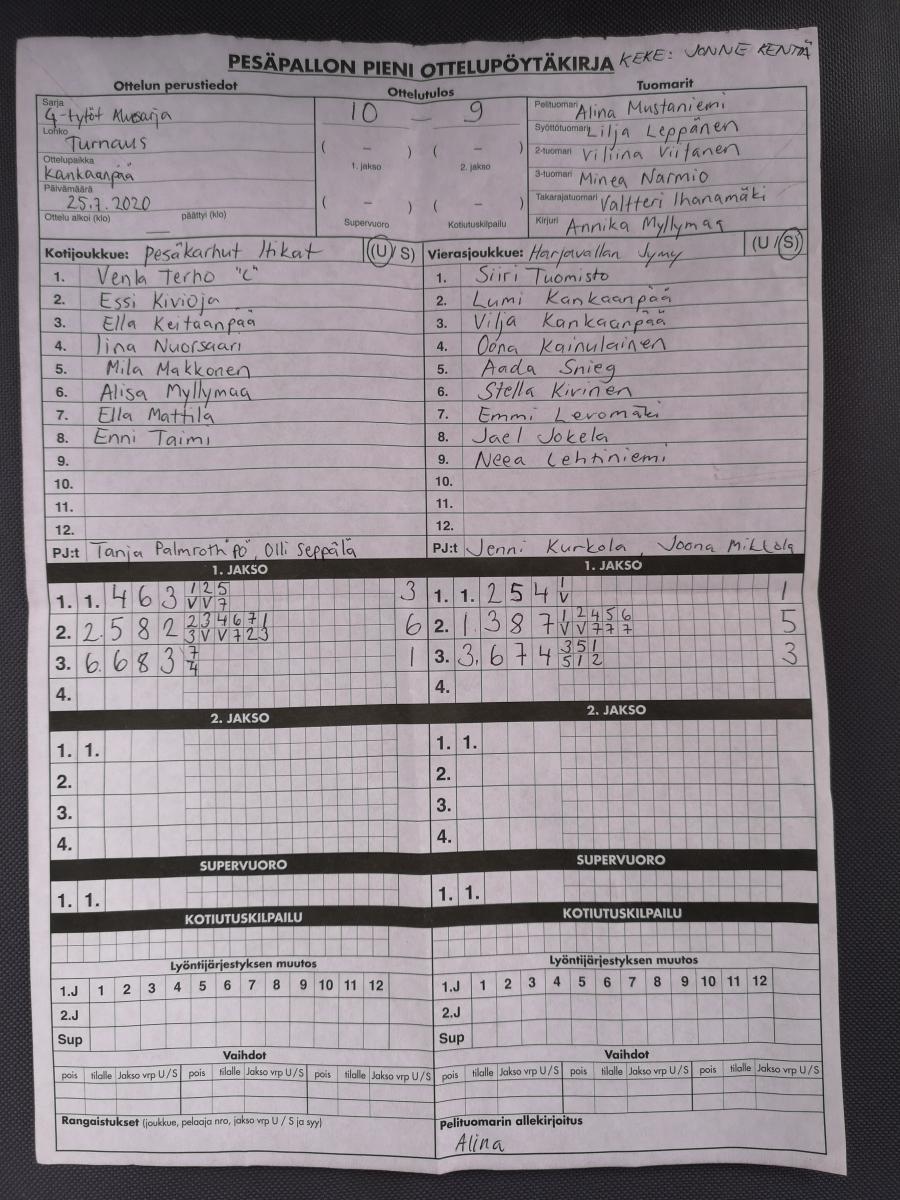 PESÄPALLON PIENI OTTELUPÖYTÄKIRJA KEKE: JONNE KENTTÄ
Ottelun perustiedot Ottelutulos Tuomarit
Sarja G-tytöt Aluesarja
Lohko Turnaus
Ottelupaikka Kankaanpää
Päivämäärä 25.7.2020
Ottelu alkoi (klo) — päättyi (klo)
10 — 9
( – ) ( – )
1. jakso 2. jakso
( – ) ( – )
Supervuoro Kotiutuskilpailu
Pelituomari Alina Mustaniemi
Syöttötuomari Lilja Leppänen
2-tuomari Viliina Viitanen
3-tuomari Minea Narmio
Takarajatuomari Valtteri Ihanamäki
Kirjuri Annika Myllymaa
Kotijoukkue: Pesäkarhut Itikat (U/S)
1. Venla Terho "C"
2. Essi Kivioja
3. Ella Keitaanpää
4. Iina Nuorsaari
5. Mila Makkonen
6. Alisa Myllymaa
7. Ella Mattila
8. Enni Taimi
9.
10.
11.
12.
PJ:t Tanja Palmroth "PÖ", Olli Seppälä
Vierasjoukkue: Harjavallan Jymy (U/S)
1. Siiri Tuomisto
2. Lumi Kankaanpää
3. Vilja Kankaanpää
4. Oona Kainulainen
5. Aada Snieg
6. Stella Kivinen
7. Emmi Levomäki
8. Jael Jokela
9. Neea Lehtiniemi
10.
11.
12.
PJ:t Jenni Kurkola, Joona Mikkola
1. JAKSO
1. 1. 4 6 3 1 2 5 3
V V 7
2. 2. 5 8 2 2 3 4 6 7 1 6
3 V V 7 2 3
3. 6. 6 8 3 7 1
4
4.
1. JAKSO
1. 1. 2 5 4 1 1
V
2. 1. 3 8 7 1 2 4 5 6 5
V V 7 7 7
3. 3. 6 7 4 3 5 1 3
5 1 2
4.
2. JAKSO 2. JAKSO
1. 1. 1. 1.
2. 2.
3. 3.
4. 4.
SUPERVUORO SUPERVUORO
1. 1. 1. 1.
KOTIUTUSKILPAILU KOTIUTUSKILPAILU
Lyöntijärjestyksen muutos Lyöntijärjestyksen muutos
1.J 1 2 3 4 5 6 7 8 9 10 11 12 1.J 1 2 3 4 5 6 7 8 9 10 11 12
2.J 2.J
Sup Sup
Vaihdot Vaihdot
pois tilalle Jakso vrp U/S pois tilalle Jakso vrp U/S pois tilalle Jakso vrp U/S pois tilalle Jakso vrp U/S pois tilalle Jakso vrp U/S pois tilalle Jakso vrp U/S
Rangaistukset (joukkue, pelaaja nro, jakso vrp U / S ja syy) Pelituomarin allekirjoitus
Alina